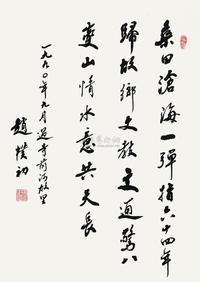 桑田滄海一彈指六十四年
歸故鄉文教交通驚
變山情水意共天長
一九九〇年九月過寺前河故里
趙樸初